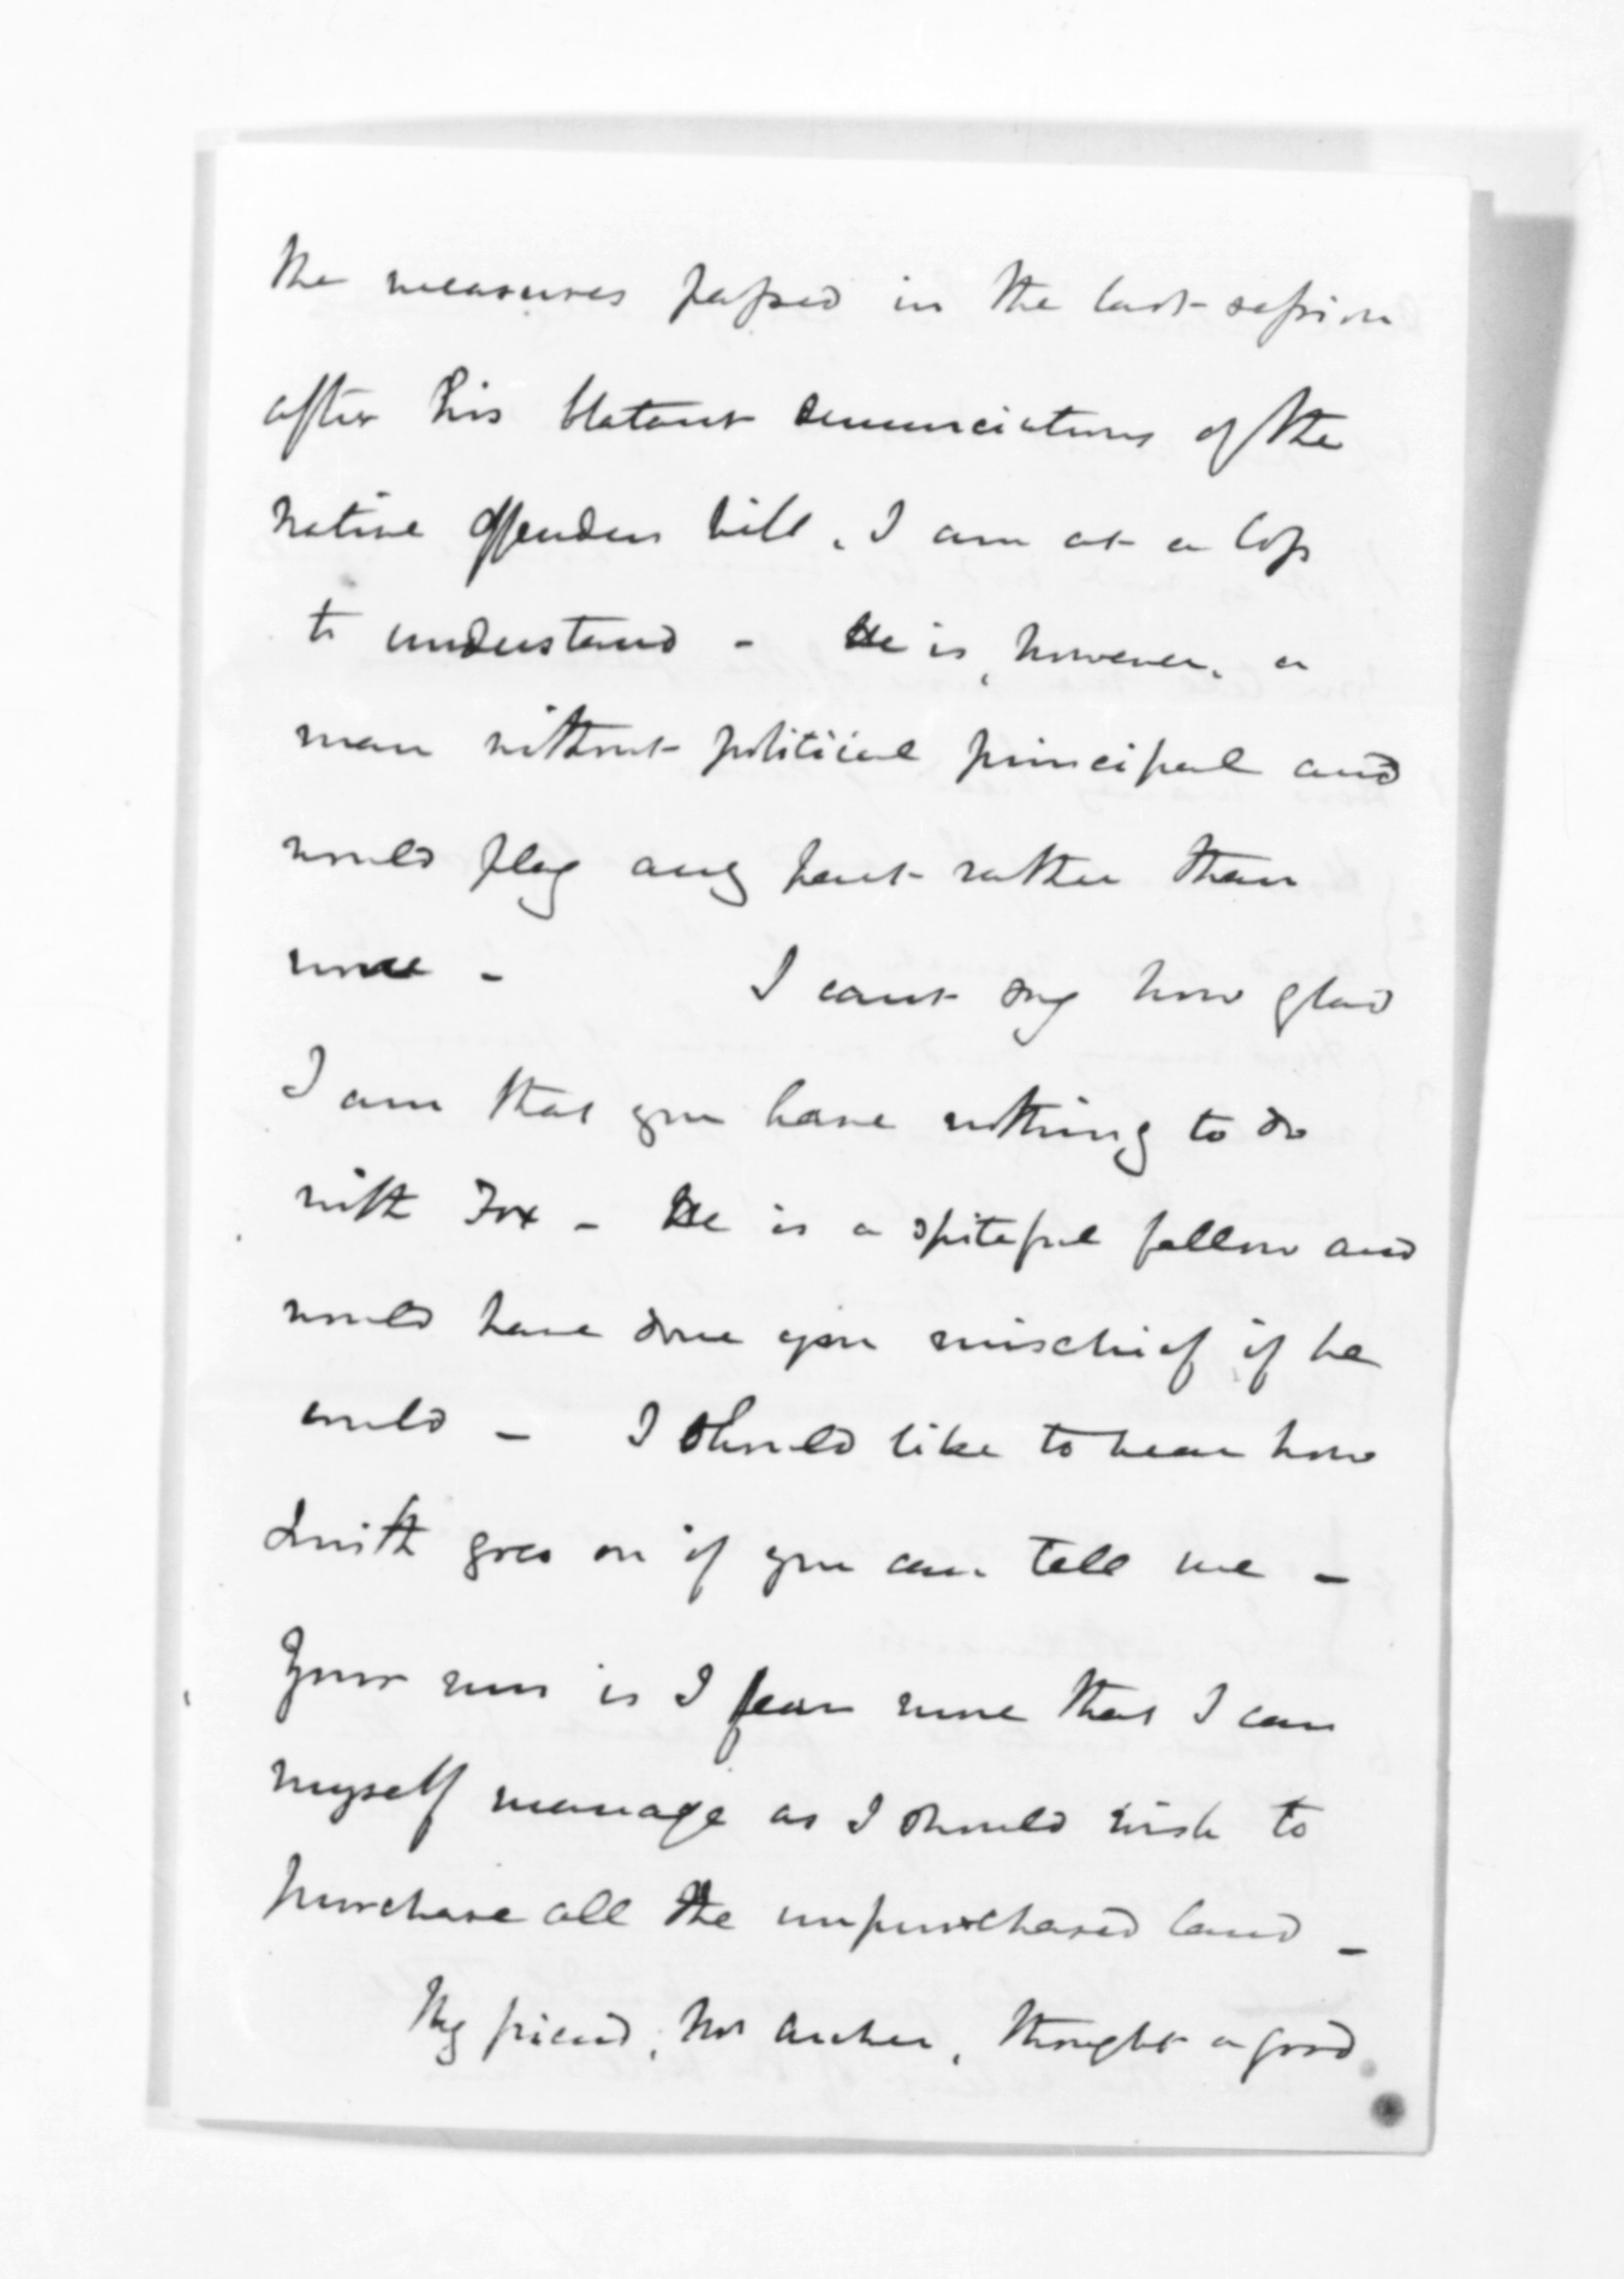 the measures passed in the last session
after his blatant denunciations of the
native offenders bill, I am at a loss
to understand - He is, however, a
man without political principal and
would play any part rather than
none - I cant say how glad
I am that you have nothing to do
with Fox - He is a spiteful fellow and
would have done you mischief if he
could - I should like to hear how
Smith goes on if you can tell me -
Your run is I fear more than I can
myself manage as I should wish to
purchase all the unpurchased land -
My friend, thought a good